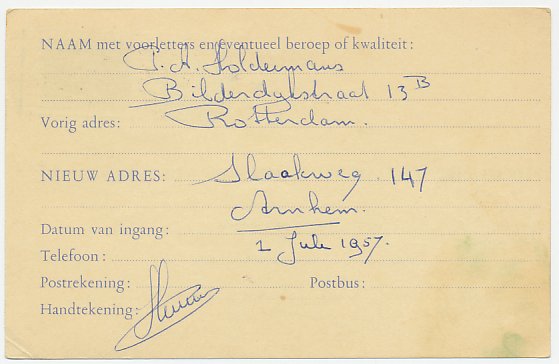 NAAM met voorletters en eventueel beroep of kwaliteit:
P. A. Holdermans
Bilderdijkstraat 13 B
Vorig adres: Rotterdam.
NIEUW ADRES: Slaakweg 147
Arnhem.
Datum van ingang:
1 Juli 1957.
Telefoon:
Postrekening: Postbus:
Handtekening: